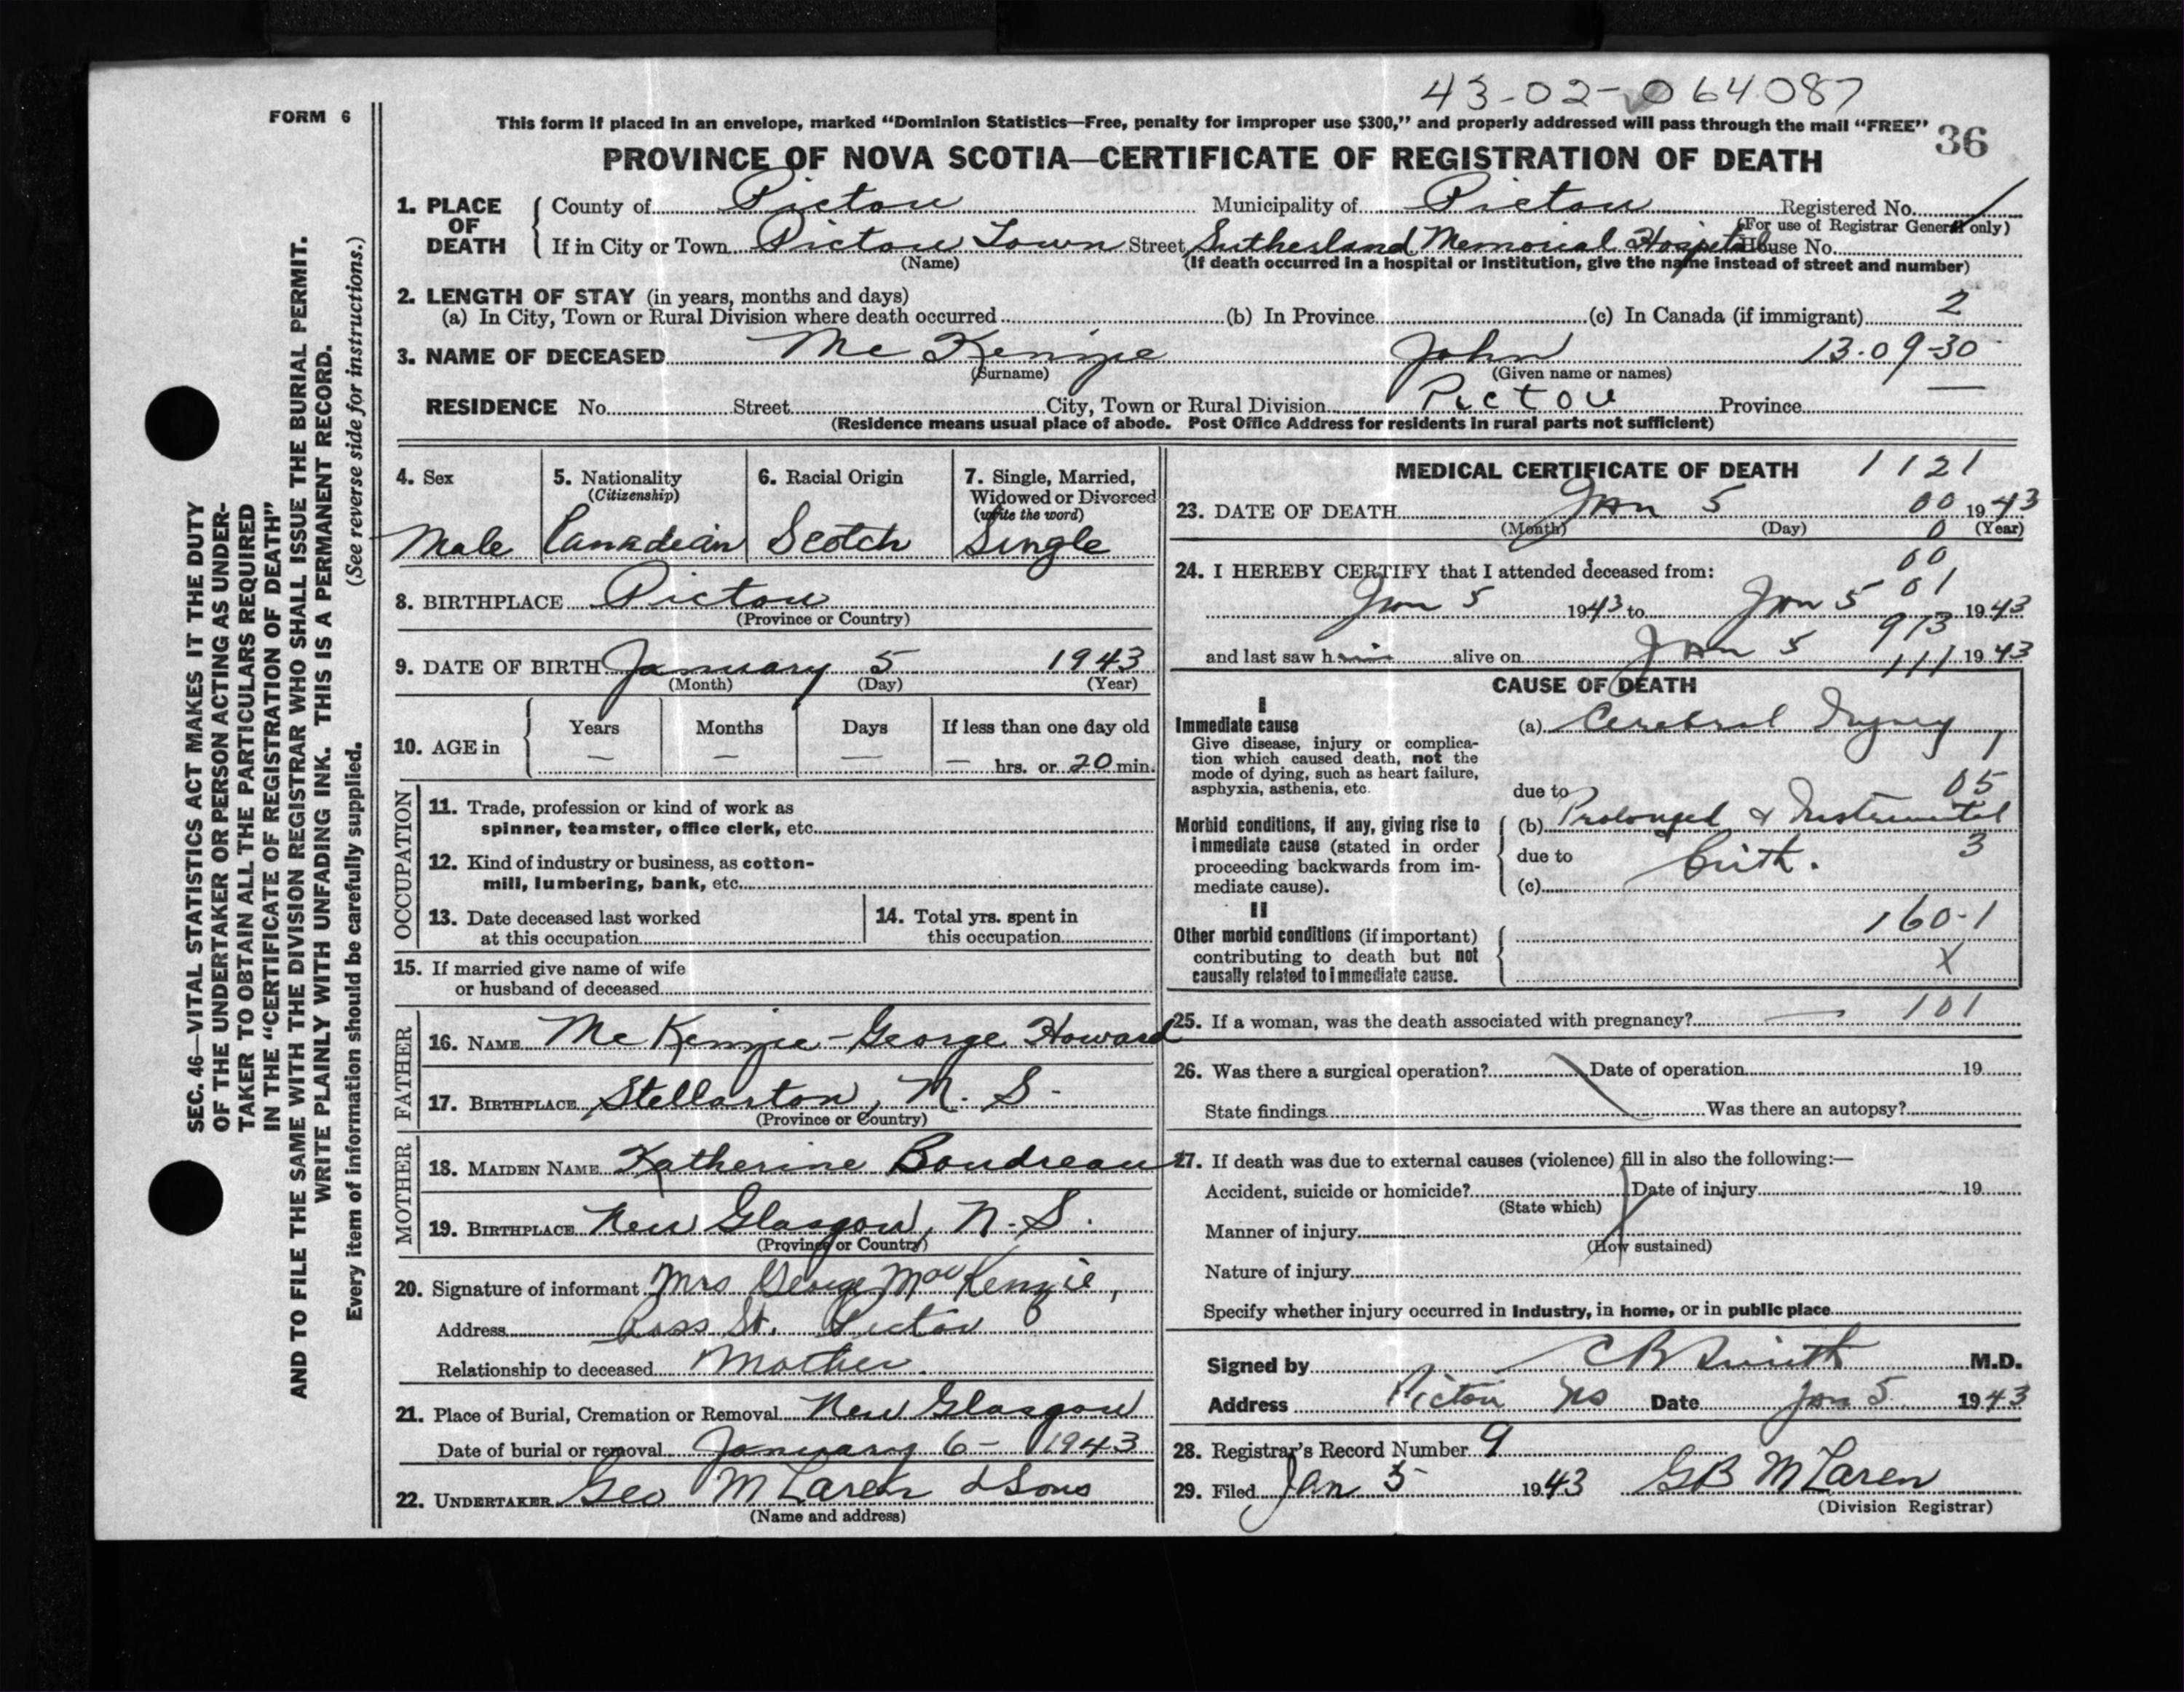 43-02-064087
FORM 6
This form if placed in an envelope, marked “Dominion Statistics—Free, penalty for improper use $300,” and properly addressed will pass through the mail “FREE”
36
PROVINCE OF NOVA SCOTIA—CERTIFICATE OF REGISTRATION OF DEATH
1. PLACE OF DEATH
County of Pictou Municipality of Pictou Registered No.
(For use of Registrar General only)
If in City or Town Pictou Town Street Sutherland Memorial Hospital House No.
(Name) (If death occurred in a hospital or institution, give the name instead of street and number)
2. LENGTH OF STAY (in years, months and days)
(a) In City, Town or Rural Division where death occurred (b) In Province (c) In Canada (if immigrant) 2
3. NAME OF DECEASED Mc Kenzie John 13-09-30
(Surname) (Given name or names)
RESIDENCE No. Street City, Town or Rural Division Pictou Province
(Residence means usual place of abode. Post Office Address for residents in rural parts not sufficient)
4. Sex
Male
5. Nationality
(Citizenship)
Canadian
6. Racial Origin
Scotch
7. Single, Married,
Widowed or Divorced
(write the word)
Single
8. BIRTHPLACE Pictou
(Province or Country)
9. DATE OF BIRTH January 5 1943
(Month) (Day) (Year)
10. AGE in
Years Months Days If less than one day old
— — — — hrs. or 20 min.
OCCUPATION
11. Trade, profession or kind of work as
spinner, teamster, office clerk, etc.
12. Kind of industry or business, as cotton-
mill, lumbering, bank, etc.
13. Date deceased last worked
at this occupation
14. Total yrs. spent in
this occupation
15. If married give name of wife
or husband of deceased
FATHER
16. NAME Mc Kenzie - George Howard
17. BIRTHPLACE Stellarton, N. S.
(Province or Country)
MOTHER
18. MAIDEN NAME Katherine Boudreau
19. BIRTHPLACE New Glasgow, N. S.
(Province or Country)
20. Signature of informant Mrs George MacKenzie,
Address Ross St. Pictou
Relationship to deceased Mother.
21. Place of Burial, Cremation or Removal New Glasgow
Date of burial or removal January 6 - 1943
22. UNDERTAKER Geo McLaren & Sons
(Name and address)
MEDICAL CERTIFICATE OF DEATH 1121
23. DATE OF DEATH Jan 5 00 1943
(Month) (Day) 0 (Year)
00
24. I HEREBY CERTIFY that I attended deceased from:
Jan 5 1943 to Jan 5 01 1943
913
and last saw him alive on Jan 5 1943
111
CAUSE OF DEATH
I
Immediate cause
Give disease, injury or complica-
tion which caused death, not the
mode of dying, such as heart failure,
asphyxia, asthenia, etc.
(a) Cerebral Injury
1
due to 05
Morbid conditions, if any, giving rise to
immediate cause (stated in order
proceeding backwards from im-
mediate cause).
(b) Prolonged & Instrumental
due to birth. 3
(c)
II
Other morbid conditions (if important)
contributing to death but not
causally related to immediate cause.
160-1
X
25. If a woman, was the death associated with pregnancy? — 101
26. Was there a surgical operation? Date of operation 19
State findings Was there an autopsy?
27. If death was due to external causes (violence) fill in also the following:—
Accident, suicide or homicide? Date of injury 19
(State which)
Manner of injury
(How sustained)
Nature of injury
Specify whether injury occurred in industry, in home, or in public place
Signed by C B Smith M.D.
Address Pictou NS Date Jan 5 1943
28. Registrar's Record Number 9
29. Filed Jan 5 1943 GB McLaren
(Division Registrar)
SEC. 46—VITAL STATISTICS ACT MAKES IT THE DUTY
OF THE UNDERTAKER OR PERSON ACTING AS UNDER-
TAKER TO OBTAIN ALL THE PARTICULARS REQUIRED
IN THE “CERTIFICATE OF REGISTRATION OF DEATH”
AND TO FILE THE SAME WITH THE DIVISION REGISTRAR WHO SHALL ISSUE THE BURIAL PERMIT.
WRITE PLAINLY WITH UNFADING INK. THIS IS A PERMANENT RECORD.
Every item of information should be carefully supplied. (See reverse side for instructions.)